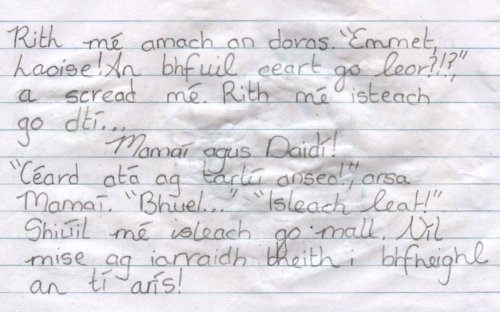 Rith mé amach an doras. "Emmet,
Laoise! An bhfuil ceart go leor?!?,"
a scread mé. Rith mé isteach
go dtí...
Mamaí agus Daidí!
"Céard atá ag tarlú anseo!", arsa
Mamaí. "Bhuel..." "Isteach leat!"
Shiúil mé isteach go mall. Níl
mise ag iarraidh bheith i bhfheighl
an tí arís!